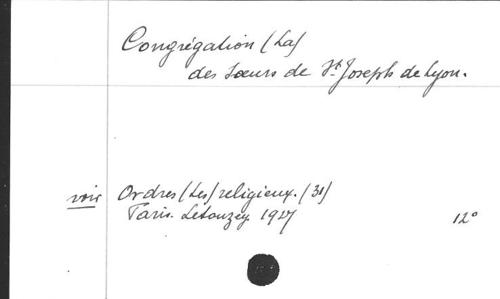 Congrégation (La)
des Sœurs de St Joseph de Lyon.
voir Ordres (Les) religieux. (31)
Paris. Letouzey. 1927
12°